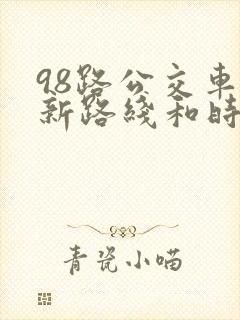 98路公交車
新路綫和時
青瓷小喵